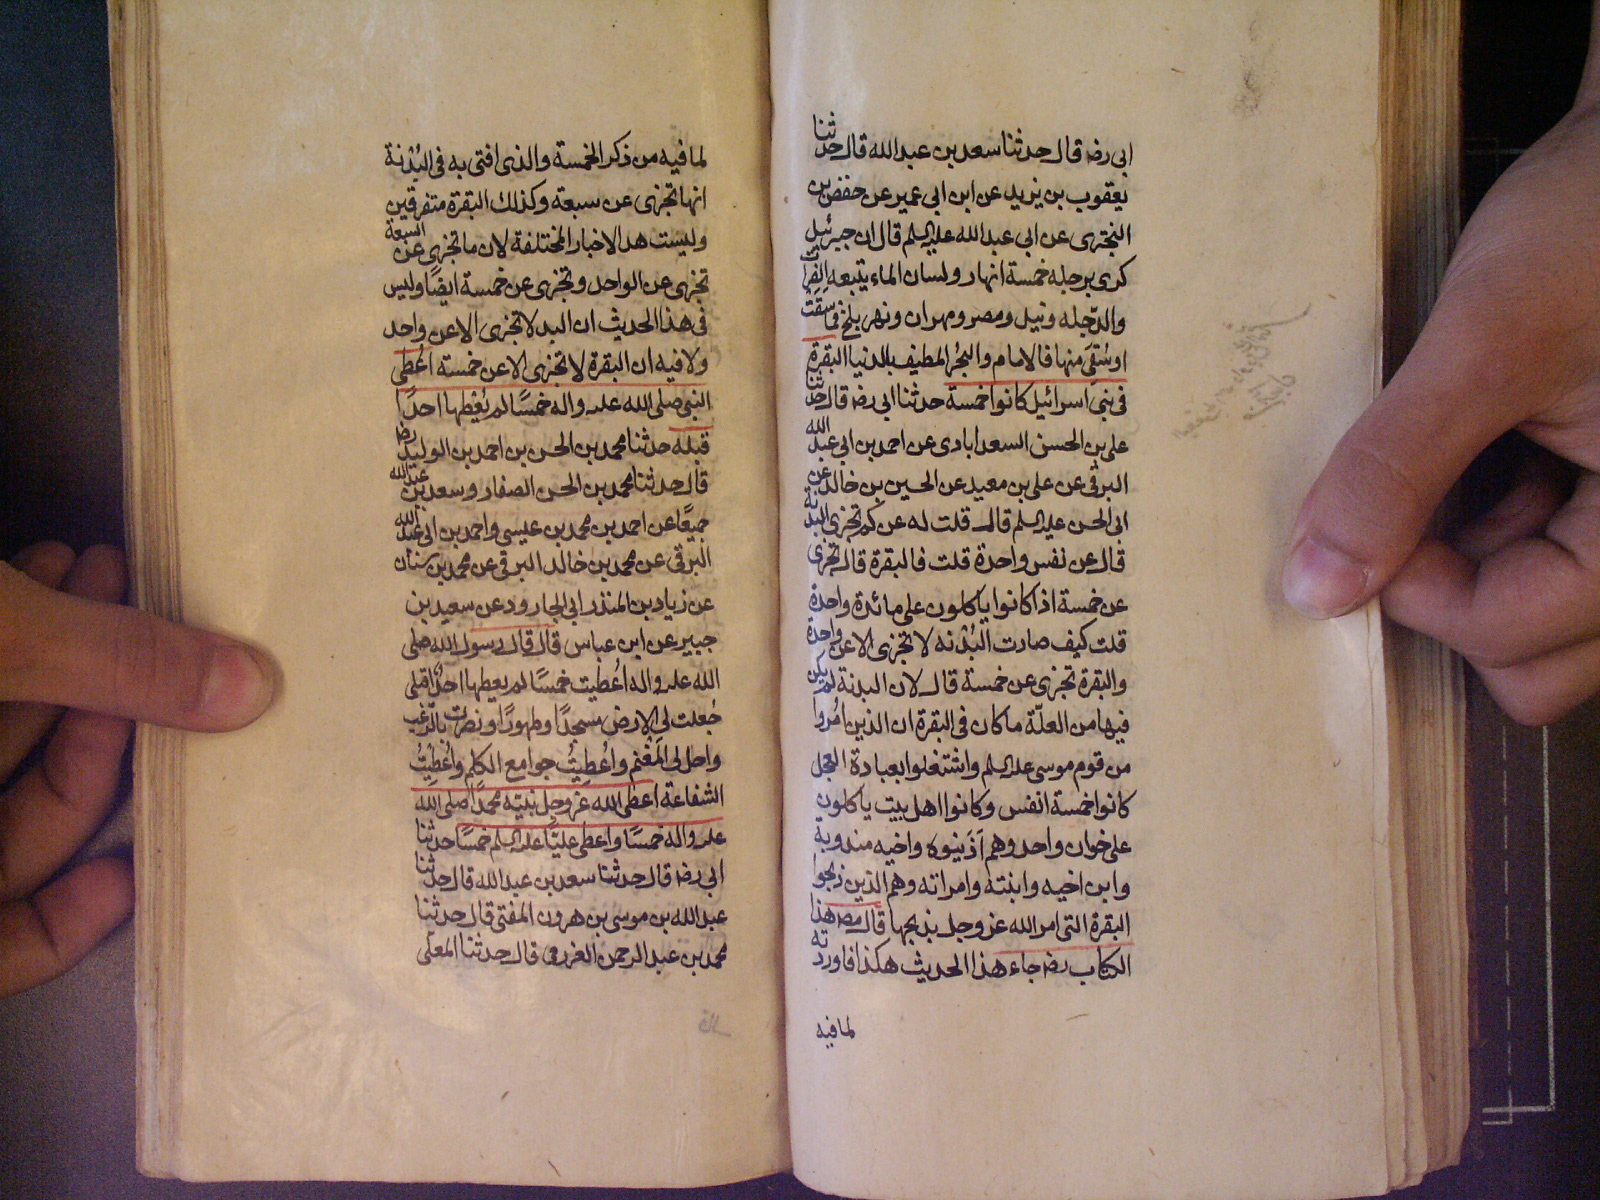 ابى رضه قال حدثنا سعد بن عبد الله قال حدثنا
يعقوب بن يزيد عن ابن ابى عمير عن حفص بن
البخترى عن ابى عبد الله عليه السلم قال ان جبرئيل
كرى برجله خمسة انهار ولسان الماء يتبعه الفرات
والدّجله ونيل ومصر ومهران ونهر بلخ فما سقت
اوسُقِىَ منها فالامام والبحُر المطيف بالدنيا البقرة
فى بنى اسرائيل كانوا خمسة حدثنا ابى رضه قال حدثنا
على بن الحسن السعدابادى عن احمد بن ابى عبد الله
البرقى عن على بن معبد عن الحسين بن خالد عن
ابى الحسن عليه السلم قال قلت له عن كم تجزى البدنة
قال عن نفس واحدة قلت فالبقرة قال تجزى
عن خمسة اذا كانوا ياكلون على مائدة واحدة
قلت كيف صارت البُدْنه لا تجزى الا عن واحدة
والبقرة تجزى عن خمسة قال لان البدنة لم يكن
فيها من العلّة ما كان فى البقرة ان الذين امُروا
من قوم موسى عليه السلم واشتغلوا بعبادة العجل
كانوا خمسة انفس وكانوا اهل بيت ياكلون
على خوان واحد وهم اَذَينوه واخيه مندويه
وابن اخيه وابنته وامراته وهم الذين ذبحوا
البقرة التى امر الله عز وجل بذبحها قال مصه هذا
الكتاب رضه جاء هذا الحديث هكذا فاوردته
لما فيه
لما فيه من ذكر الخمسة والذى افتى به فى البُدْنة
انها تجزى عن سبعة وكذلك البقرة متفرقين
وليست هذ الاخبار المختلفة لان ما تجزى عن السبعة
تجزى عن الواحد وتجزى عن خمسة ايضًا وليس
فى هذا الحديث ان البدلا تجزى الا عن واحد
ولا فيه ان البقرة لا تجزى الا عن خمسة اعُطى
النبى صلى الله عليه واله خمسًا لم يُعْطها احدًا
قبله حدثنا محمد بن الحسن بن احمد بن الوليد رضه
قال حدثنا محمد بن الحسن الصفار وسعد بن عبد الله
جميعًا عن احمد بن محمد بن عيسى واحمد بن ابى عبد الله
البرقى عن محمد بن خالد البرقى عن محمد بن سنان
عن زياد بن المنذر ابى الجارود عن سعيد بن
جبير عن ابن عباس قال قال رسول الله صلى
الله عليه واله اعُطيت خمسًا لم يعطها احدٌ قبلى
جُعلت لى الارض مسجدًا وطهورًا ونصرت بالرّعب
واحل لى المَغْنم واُعطيتُ جوامع الكلِم واُعُطِيتُ
الشفاعة اعطى الله عز وجل نبيّه محمدًا صلى الله
عليه واله خمسًا واعطى عليّا عليه السلم خمسًا حدثنا
ابى رضه قال حدثنا سعد بن عبد الله قال حدثنا
عبد الله بن موسى بن هرون المفتى قال حدثنا
محمد بن عبد الرحمن العرزمى قال حدثنا المعلى
قال